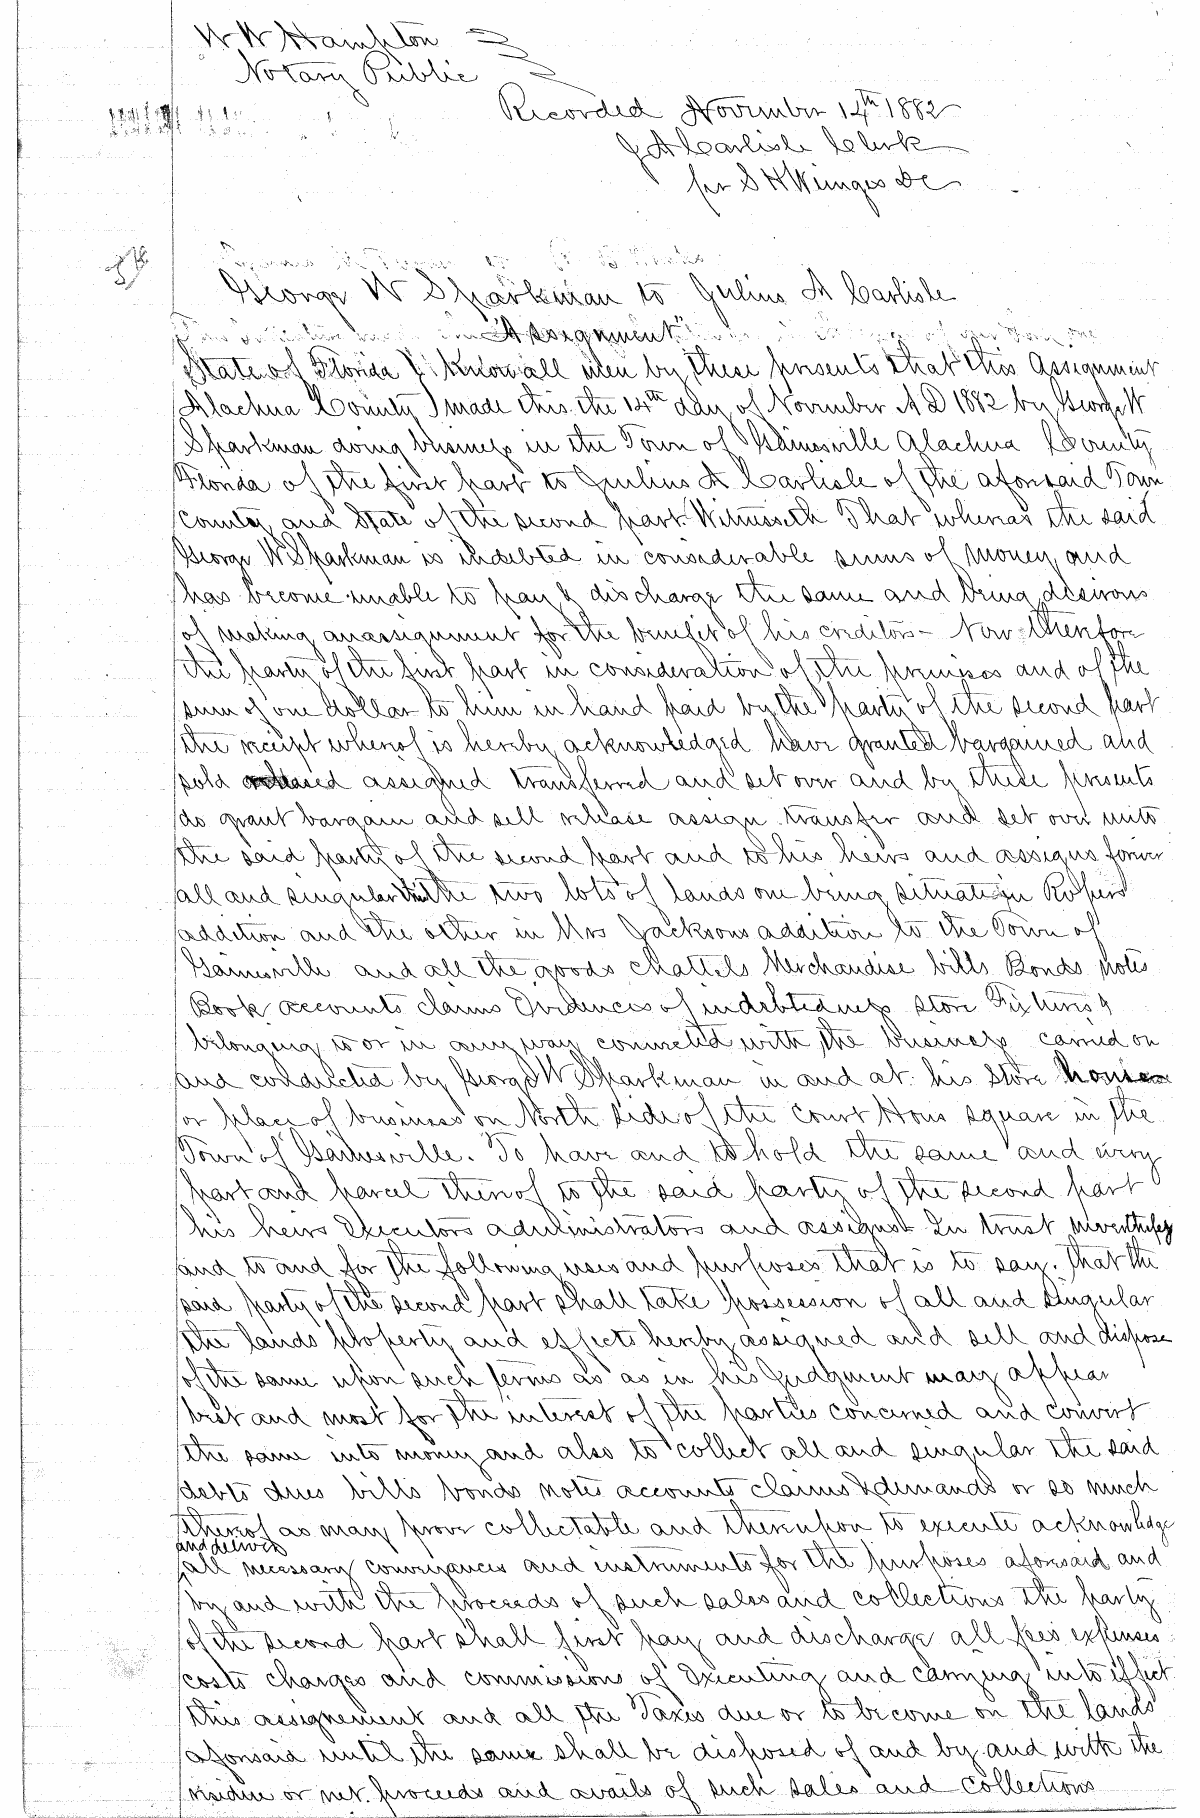 W W Hampton
Notary Public
Recorded November 14th 1882
J A Carlisle Clerk
per S H Wienges DC
George W Sparkman to Julius A Carlisle
"Assignment"
State of Florida } Know all men by these presents that this Assignment
Alachua County } made this the 14th day of November A D 1882 by George W
Sparkman doing business in the Town of Gainesville Alachua County
Florida of the first part to Julius A Carlisle of the aforesaid Town
County and State of the second part Witnesseth That whereas the said
George W Sparkman is indebted in considerable sums of money and
has become unable to pay & discharge the same and being desirous
of making an assignment for the benefit of his creditors - Now therefore
the party of the first part in consideration of the premises and of the
sum of one dollar to him in hand paid by the party of the second part
the receipt whereof is hereby acknowledged have granted bargained and
sold released assigned transferred and set over and by these presents
do grant bargain and sell release assign transfer and set over unto
the said party of the second part and to his heirs and assigns forever
all and singular the two lots of lands one being situate in Ropers
addition and the other in Mrs Jacksons addition to the Town of
Gainesville and all the goods chattels Merchandise bills Bonds notes
Book accounts claims Evidences of indebtedness store Fixtures &
belonging to or in any way connected with the business carried on
and conducted by George W Sparkman in and at his Store house
or place of business on North side of the Court Hous square in the
Town of Gainesville. To have and to hold the same and every
part and parcel thereof to the said party of the second part
his heirs Executors administrators and assigns In trust nevertheless
and to and for the following uses and purposes that is to say. That the
said party of the second part shall take possession of all and singular
the lands property and effects hereby assigned and sell and dispose
of the same upon such terms as as in his Judgment may appear
best and most for the interest of the parties concerned and convert
the same into money and also to collect all and singular the said
debts dues bills bonds notes accounts claims & demands or so much
thereof as may prove collectable and thereupon to execute acknowledge
and deliver
all necessary conveyances and instruments for the purposes aforesaid and
by and with the proceeds of such sales and collections the party
of the second part shall first pay and discharge all fees expenses
costs charges and commissions of Executing and carrying into effect
this assignement and all the Taxes due or to become on the lands
aforesaid until the same shall be disposed of and by and with the
residue or net. proceeds and avails of such sales and collections